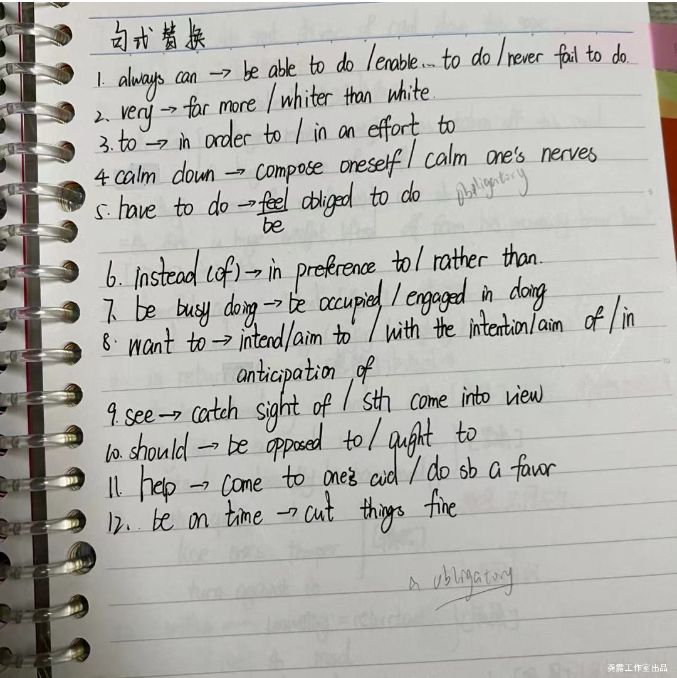 句式替换
1. always can → be able to do / enable... to do / never fail to do
2. very → far more / whiter than white
3. to → in order to / in an effort to
4 calm down → compose oneself / calm one's nerves
5. have to do → feel obliged to do obligatory
be
6. instead (of) → in preference to / rather than.
7. be busy doing → be occupied / engaged in doing
8. want to → intend/aim to / with the intention/aim of / in
anticipation of
9. see → catch sight of / sth come into view
10. should → be opposed to / ought to
11. help → come to one's aid / do sb a favor
12. be on time → cut things fine
a obligatory
英露工作室出品